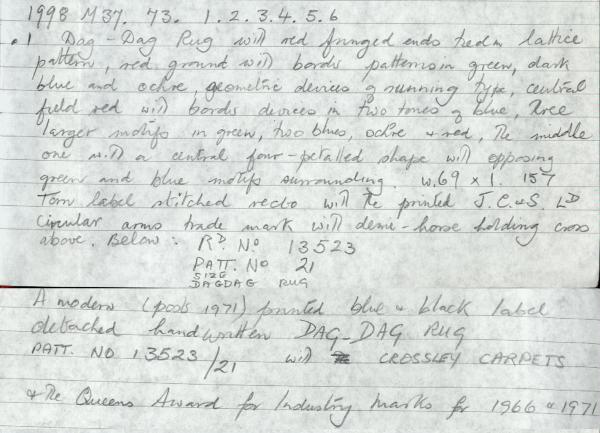 1998 M37. 73. 1. 2. 3. 4. 5. 6
.1 Dag-Dag Rug with red fringed ends tied in lattice
pattern, red ground with border patterns in green, dark
blue and ochre, geometric devices of running type, central
field red with border devices in two tones of blue, three
larger motifs in green, two blues, ochre + red, the middle
one with a central four-petalled shape with opposing
green and blue motifs surrounding. w.69 x l. 157
Torn label stitched recto with the printed J.C.&S. LD
circular arms trade mark with demi-horse holding cross
above. Below: RD. No 13523
PATT. No 21
SIZE
DAGDAG RUG
A modern (post 1971) printed blue + black label
detached handwritten DAG-DAG RUG
PATT. NO 13523/21 with CROSSLEY CARPETS
+ the Queens Award for Industry Marks for 1966 + 1971